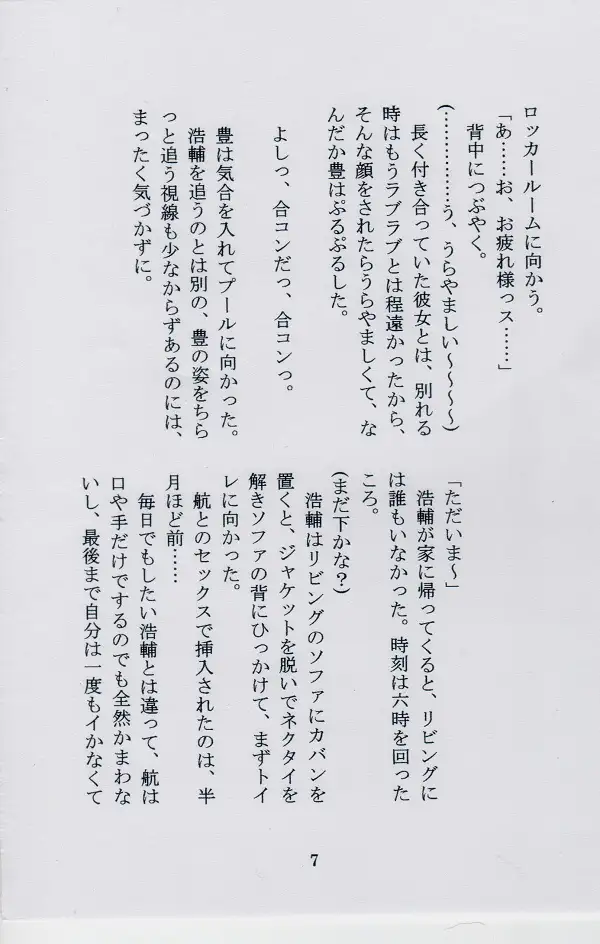 ロッカールームに向かう。
「あ……お、お疲れ様っス……」
背中につぶやく。
(……………う、うらやましい～～～～)
長く付き合っていた彼女とは、別れる
時はもうラブラブとは程遠かったから、
そんな顔をされたらうらやましくて、な
んだか豊はぷるぷるした。
よしっ、合コンだっ、合コンっ。
豊は気合を入れてプールに向かった。
浩輔を追うのとは別の、豊の姿をちら
っと追う視線も少なからずあるのには、
まったく気づかずに。
「ただいま～」
浩輔が家に帰ってくると、リビングに
は誰もいなかった。時刻は六時を回った
ころ。
(まだ下かな？)
浩輔はリビングのソファにカバンを
置くと、ジャケットを脱いでネクタイを
解きソファの背にひっかけて、まずトイ
レに向かった。
航とのセックスで挿入されたのは、半
月ほど前……
毎日でもしたい浩輔とは違って、航は
口や手だけでするのでも全然かまわな
いし、最後まで自分は一度もイかなくて
7